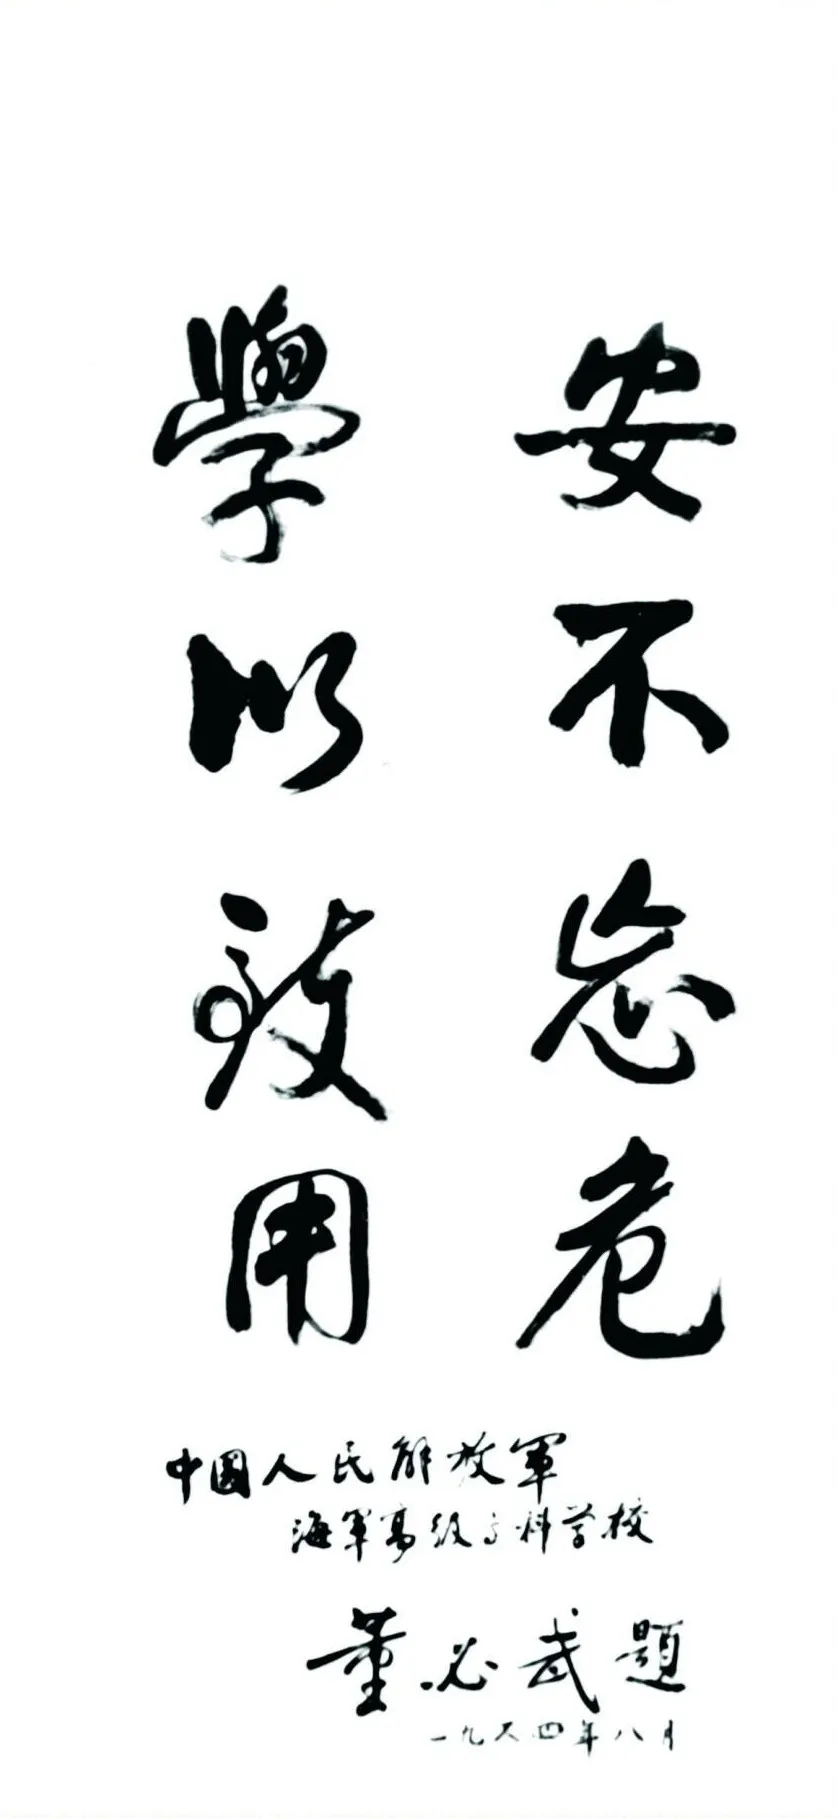 安不忘危
學以致用
中國人民解放軍
海軍高级专科学校
董必武題
一九六四年八月